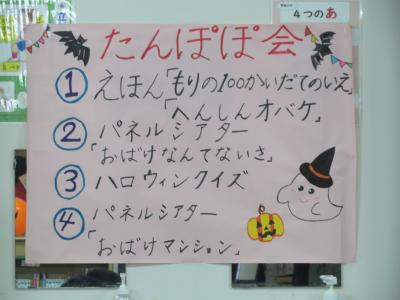 4つのあ
たんぽぽ会
① えほん「もりの100かいだてのいえ」
「へんしんオバケ」
② パネルシアター
「おばけなんてないさ」
③ ハロウィンクイズ
④ パネルシアター
「おばけマンション」